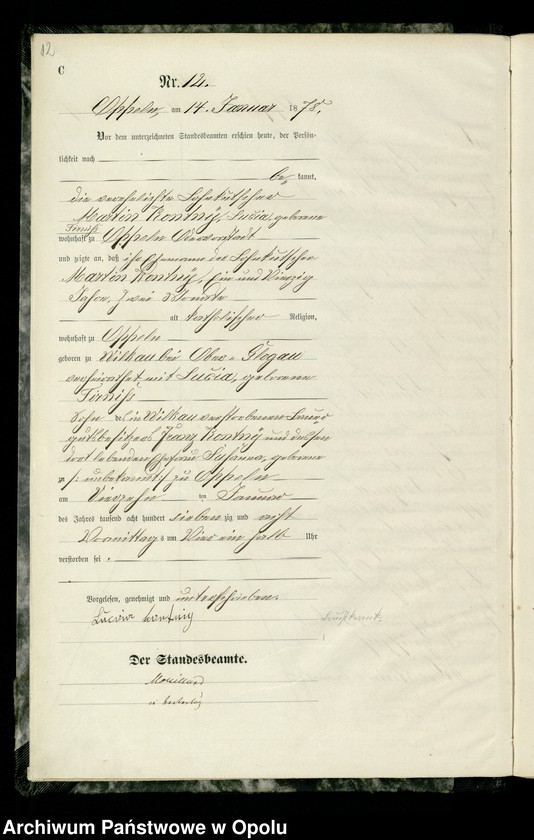 12
C
Nr. 12.
Oppeln, am 14. Januar 1878.
Vor dem unterzeichneten Standesbeamten erschien heute, der Persön-
lichkeit nach
be kannt,
die verehelichte Lohnkutscher
Martin Kontny, Lucia, geborene
Firniß
wohnhaft zu Oppeln Odervorstadt
und zeigte an, daß ihr Ehemann der Lohnkutscher
Martin Kontny, Ein und Vierzig
Jahre, zwei Monate
alt katholischer Religion,
wohnhaft zu Oppeln
geboren zu Wilkau bei Ober-Glogau
verheirathet mit Lucia, geborene
Firniß
Sohn des in Wilkau verstorbenen Bauer
gutsbesitzers Franz Kontny und dessen
dort lebenden Ehefrau Susanna, geborene
zu /: unbekannt:/ zu Oppeln
am Vierzehn ten Januar
des Jahres tausend acht hundert sieben zig und acht
Vormittags um Vier ein halb Uhr
verstorben sei.
Vorgelesen, genehmigt und unterschrieben.
Der Standesbeamte.
Archiwum Państwowe w Opolu